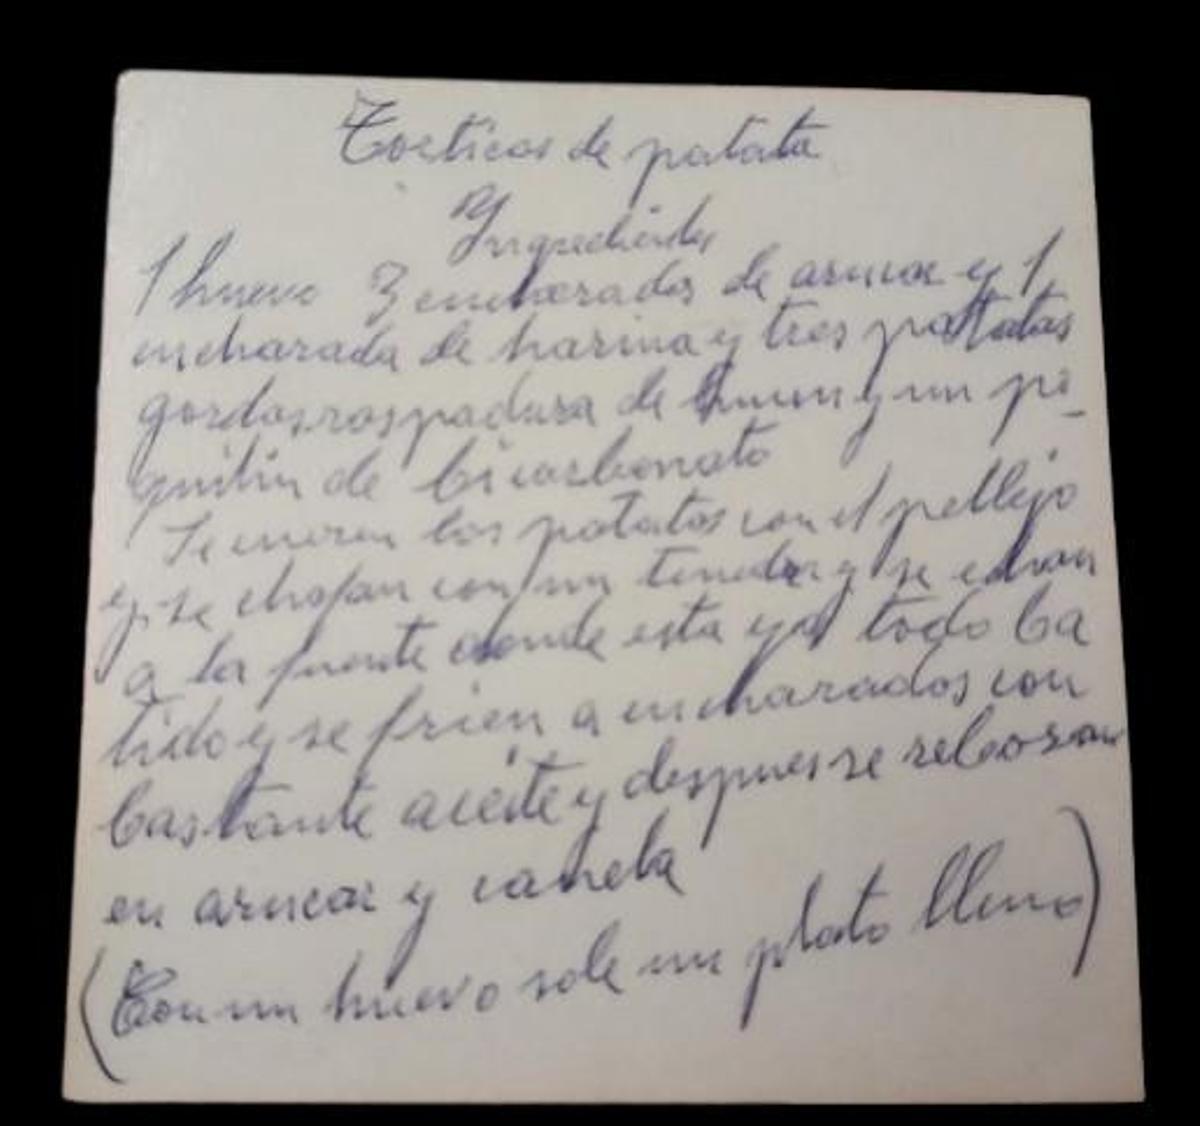 Torticas de patata
Yngredientes
1 huevo 3 cucharadas de azucar y 1
cucharada de harina y tres patatas
gordas, raspadura de limon y un po
quitin de bicarbonato
Se cuecen las patatas con el pellejo
y se chafan con un tenedor y se echan
a la fuente donde esta ya todo ba
tido y se frien a cucharadas con
bastante aceite y despues se rebozan
en azucar y canela
(Con un huevo sale un plato lleno)